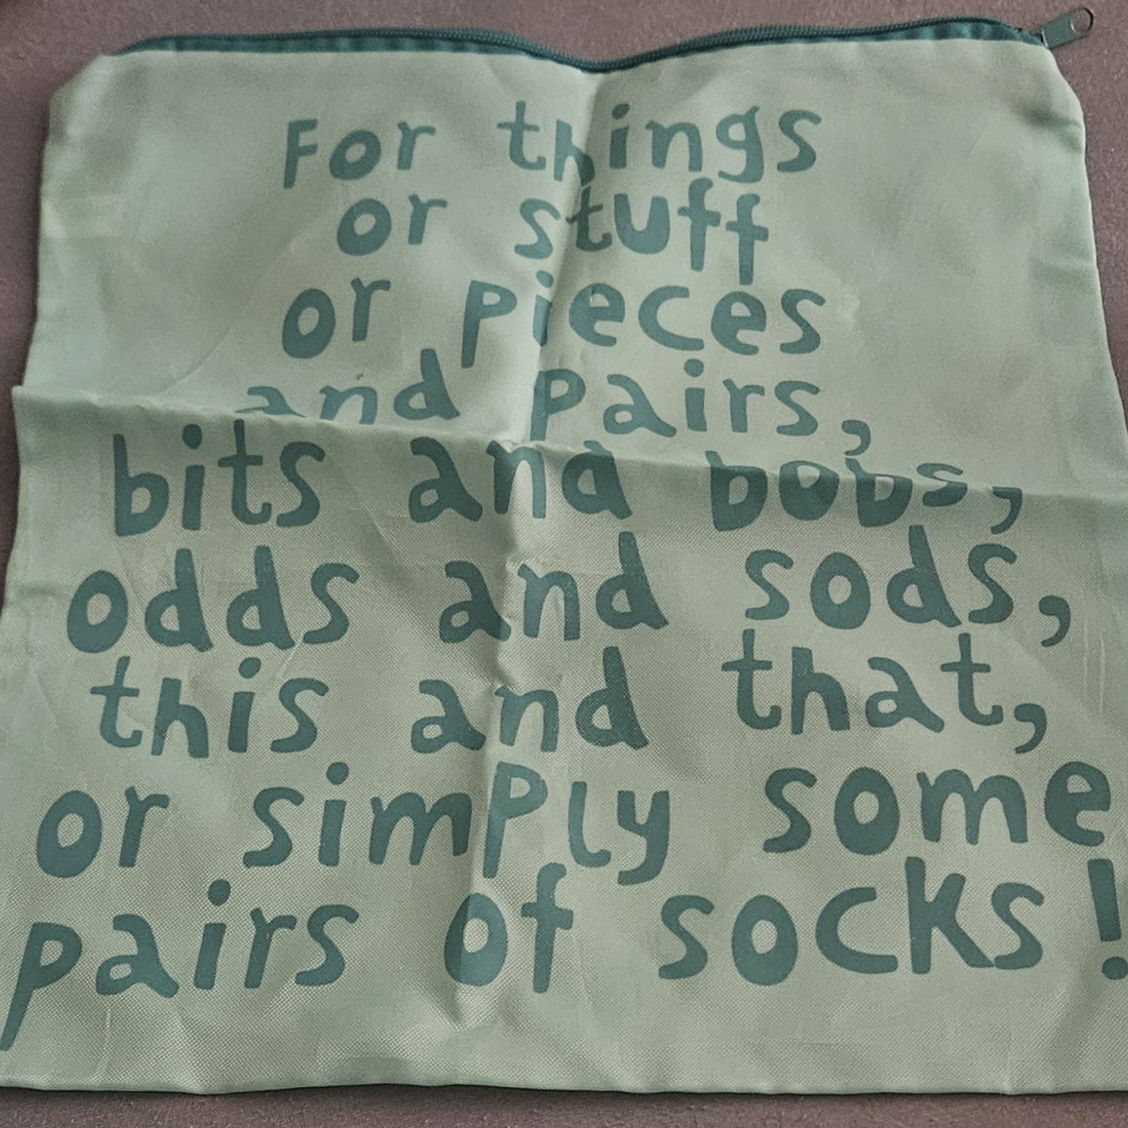 For things
or stuff
or pieces
and pairs,
bits and bobs,
odds and sods,
this and that,
or simply some
pairs of socks!